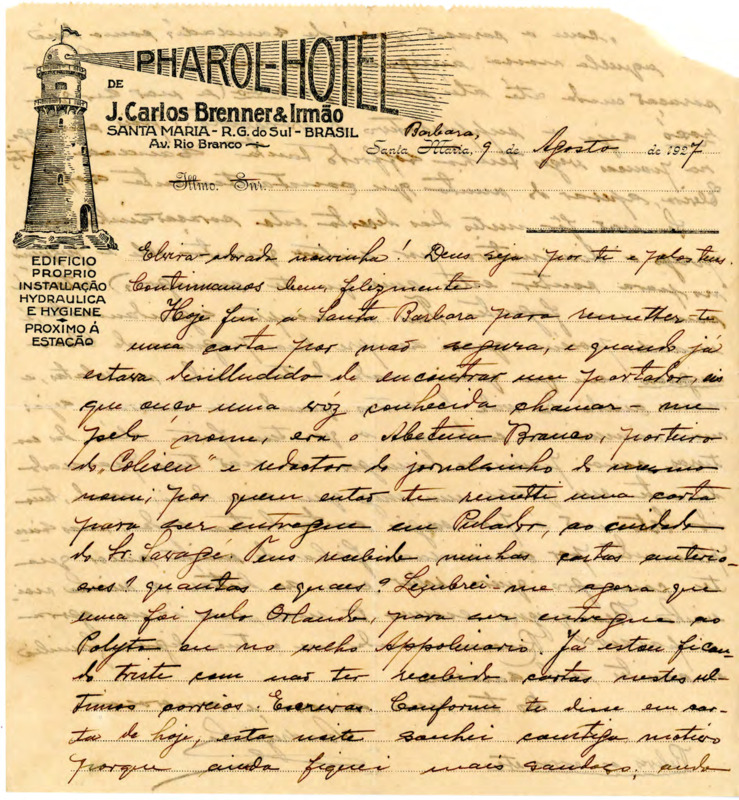 PHAROL-HOTEL
DE
J. Carlos Brenner & Irmão
SANTA MARIA - R. G. do Sul - BRASIL
Av. Rio Branco
Barbara,
Santa Maria, 9 de Agosto de 1927
Illmo. Snr.
EDIFICIO
PROPRIO
INSTALLAÇÃO
HYDRAULICA
E HYGIENE
PROXIMO Á
ESTAÇÃO
Elvira - adorada noivinha! Deus seja por ti e pelos teus.
Continuamos bem, felizmente.
Hoje fui á Santa Barbara para remetter-te
uma carta por mão segura, e quando já
estava desilludido de encontrar um portador, eis
que ouço uma vóz conhecida chamar-me
pelo nome, era o Abelino Branco, porteiro
do "Coliseu" e redactor do jornalsinho do mesmo
nome; por quem então te remetti uma carta
para ser entregue em Pulador, ao cuidado
do Sr. Savagé. Tens recebido minhas cartas anteri-
ores? quantas e quaes? Lembrei-me agora que
uma foi pelo Orlando, para ser entregue ao
Polyto ou no velho Appolinario. Já estou fican-
do triste com não ter recebido cartas nestes ul-
timos correios. Escrevas. Conforme te disse em car-
ta de hoje, esta noite sonhei comtigo, motivo
porque ainda fiquei mais saudoso; ando